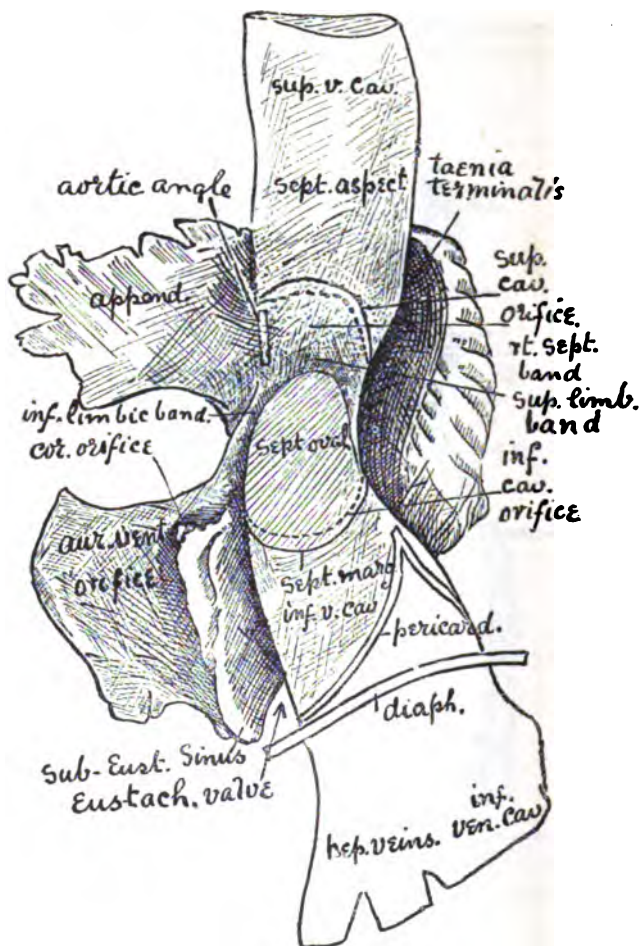 sup. v. cav.
sept. aspect
aortic angle
taenia
terminalis
append.
sup.
cav.
orifice.
rt. sept.
band
sup. limb.
band
inf. limbic band.
cor. orifice
sept oval
inf.
cav.
orifice
aur. vent
orifice
sept. marg
inf. v. cav
pericard.
diaph.
sub-Eust. Sinus
Eustach. valve
hep. veins.
inf.
ven. cav